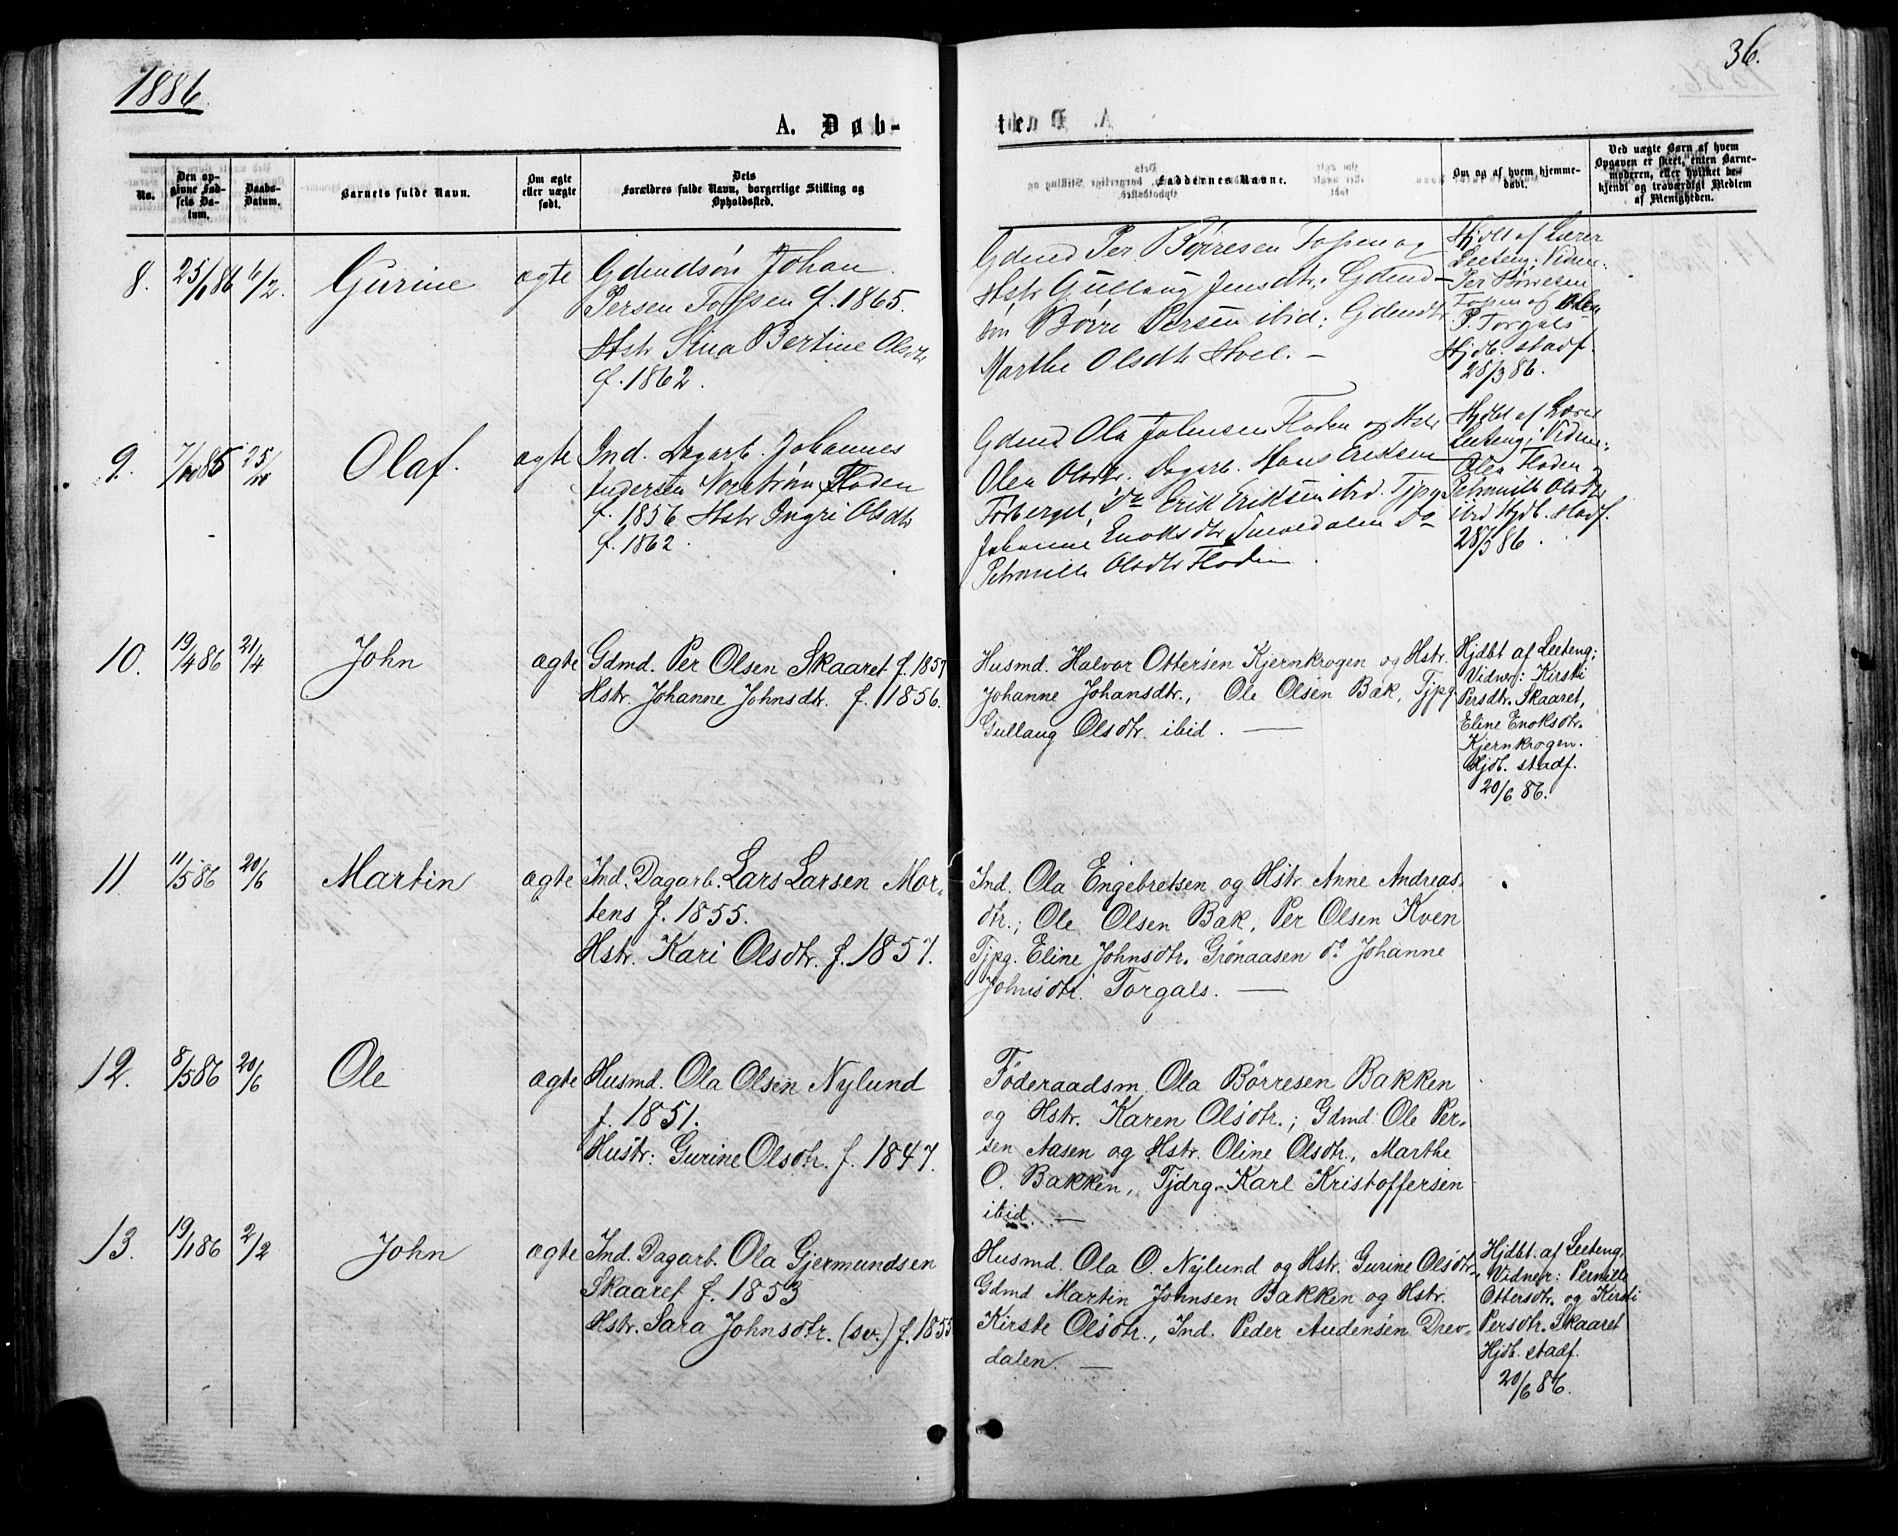 1886.
36.
A. Døb-
ten
No.
Den opgivne Fødsels Datum.
Daabs-Datum.
Barnets fulde Navn.
Om ægte eller uægte født.
Dets Forældres fulde Navn, borgerlige Stilling og Opholdssted.
Faddernes Navne.
Om og af hvem hjemmedøbt.
Ved uægte Børn af hvem Opgaven er skeet, enten Barnemoderen, eller hvilket bekjendt og troværdigt Medlem af Menigheden.
8. 25/1 86 6/2. Gurine ægte
Gdmdsøn Johan
Persen Tossen f. 1865.
Hstr Sina Bertine Olsdtr
f. 1862.
Gdmd Per Børresen Tossen og
Hstr Gullaug Jensdtr. Gdmd-
søn Børre Persen ibid; Gdmdtr
Marthe Olsdtr Hoel. –
Hjdbt af Lærer
Leeteng; Vidner:
Per Børresen
Tossen og
P. Torgals
Hjdb. stadf.
28/3 86.
9. 85 25/ Olaf. ægte
Ind. Dagarb. Johannes
Andersen Floden
f. 1856 Hstr Ingri Olsdtr
f. 1862.
Gdmd Ola Johnsen Floden og Hstr
Olea Olsdtr. Dagarb. Hans Eriksen
Torberget, Do Erik Eriksen ibid. Tjpg.
Johanne Enoksdtr Do
Petronille Olsdtr Floden.
Hjdbt af Lærer
Leeteng; Vidner:
Olea Floden og
Petronille Olsdtr
ibid Hjdb. stadf.
28/3 86.
10. 19/4 86 21/4 John ægte
Gdmd. Per Olsen Skaaret f. 1857
Hstr. Johanne Johnsdtr. f. 1856.
Husmd. Halvor Ottersen Kjernkrogen og Hstr.
Johanne Johansdtr., Ole Olsen Bak, Tjpg
Gullaug Olsdtr. ibid. —
Hjdbt af Leeteng;
Vidner: Kirsti
Persdtr. Skaaret,
Eline Enoksdtr.
Kjernkrogen.
Hjdb. stadf.
20/6 86.
11 11/5 86 20/6 Martin ægte
Ind. Dagarb. Lars Larsen Mor-
tens f. 1855.
Hstr. Kari Olsdtr. f. 1857.
Ind. Ola Engebretsen og Hstr. Anne Andreas-
dtr.; Ole Olsen Bak, Per Olsen Kven
Tjpg. Eline Johnsdtr. Grønaasen do Johanne
Johnsdtr. Torgals. —
12. 8/5 86 20/6 Ole ægte
Husmd. Ola Olsen Nylund
f. 1851.
Hustr: Gurine Olsdtr. f. 1847.
Føderaadsm. Ola Børresen Bakken
og Hstr. Karen Olsdtr.; Gdmd. Ole Per-
sen Aasen og Hstr. Oline Olsdtr., Marthe
O. Bakken, Tjdrg. Karl Kristoffersen
ibid. —
13. 19/1 86 2/2 John ægte
Ind. Dagarb. Ola Gjermundsen
Skaaret f. 1853
Hstr. Sara Johnsdtr. (sv.) f. 1855
Husmd. Ola O. Nylund og Hstr. Gurine Olsdtr.
Gdmd Martin Johnsen Bakken og Hstr.
Kirste Olsdtr., Ind. Peder Audensen Drev-
dalen. —
Hjdbt. af Leeteng,
Vidner: Pernille
Ottersdtr. og Kirsti
Persdtr. Skaaret
Hjdb. stadf.
20/6 86.